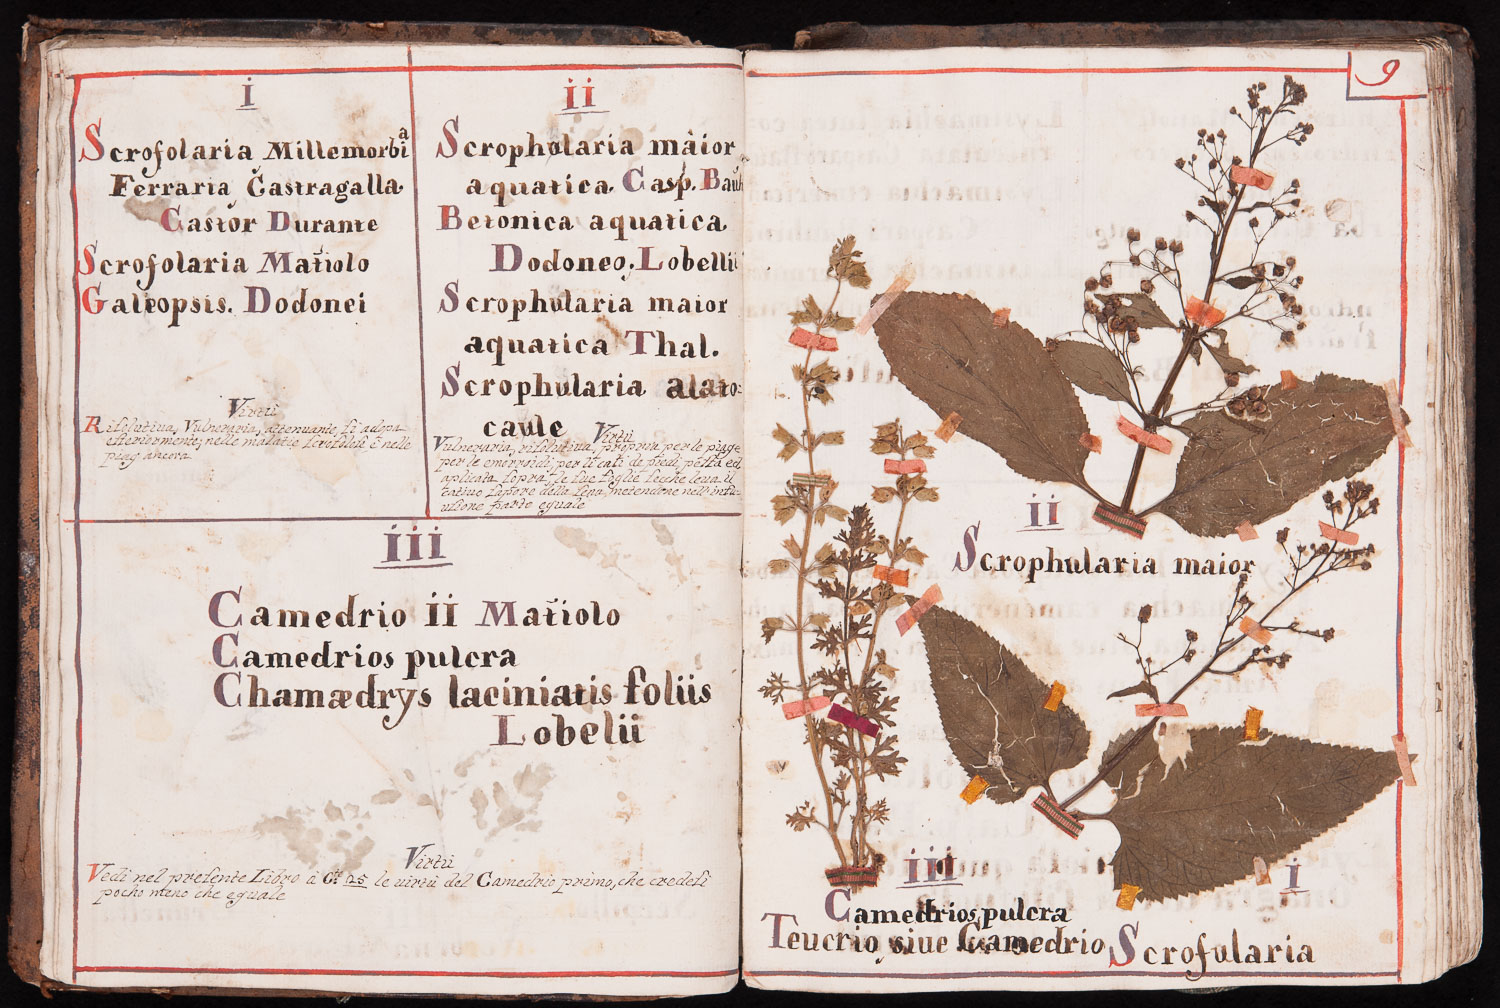 i
Scrofolaria Millemorbia
Ferraria Castragalla
Castor Durante
Scrofolaria Matiolo
Galiopsis. Dodonei
Virtù
Risolutiva, Vulneraria, attenuante, si adopa
esteriormente, nelle malatie scrofolose è nelle
piag ancora
ii
Scrophularia màior
aquatica. Casp. Bauh
Betonica aquatica.
Dodoneo, Lobellii
Scrophularia maior
aquatica Thal.
Scrophularia alato:
caule
Virtù
Vulneraria, risolutiva, propria per le piage
per le emoroidi, per li cali de piedi, pesta ed
aplicata sopra, le sue foglie secche leva il
cativo sapore della Sena, metendone nell'infu-
usione parte eguale
iii
Camedrio ii Matiolo
Camedrios pulcra
Chamædrys laciniatis foliis
Lobelii
Virtù
Vedi nel presente Libro à C. 125 le virtù del Camedrio primo, che credesi
pocho meno che eguale
9
ii
Scrophularia maior
iii
Camedrios pulcra
Teucrio, siue Camedrio
i
Scrofularia